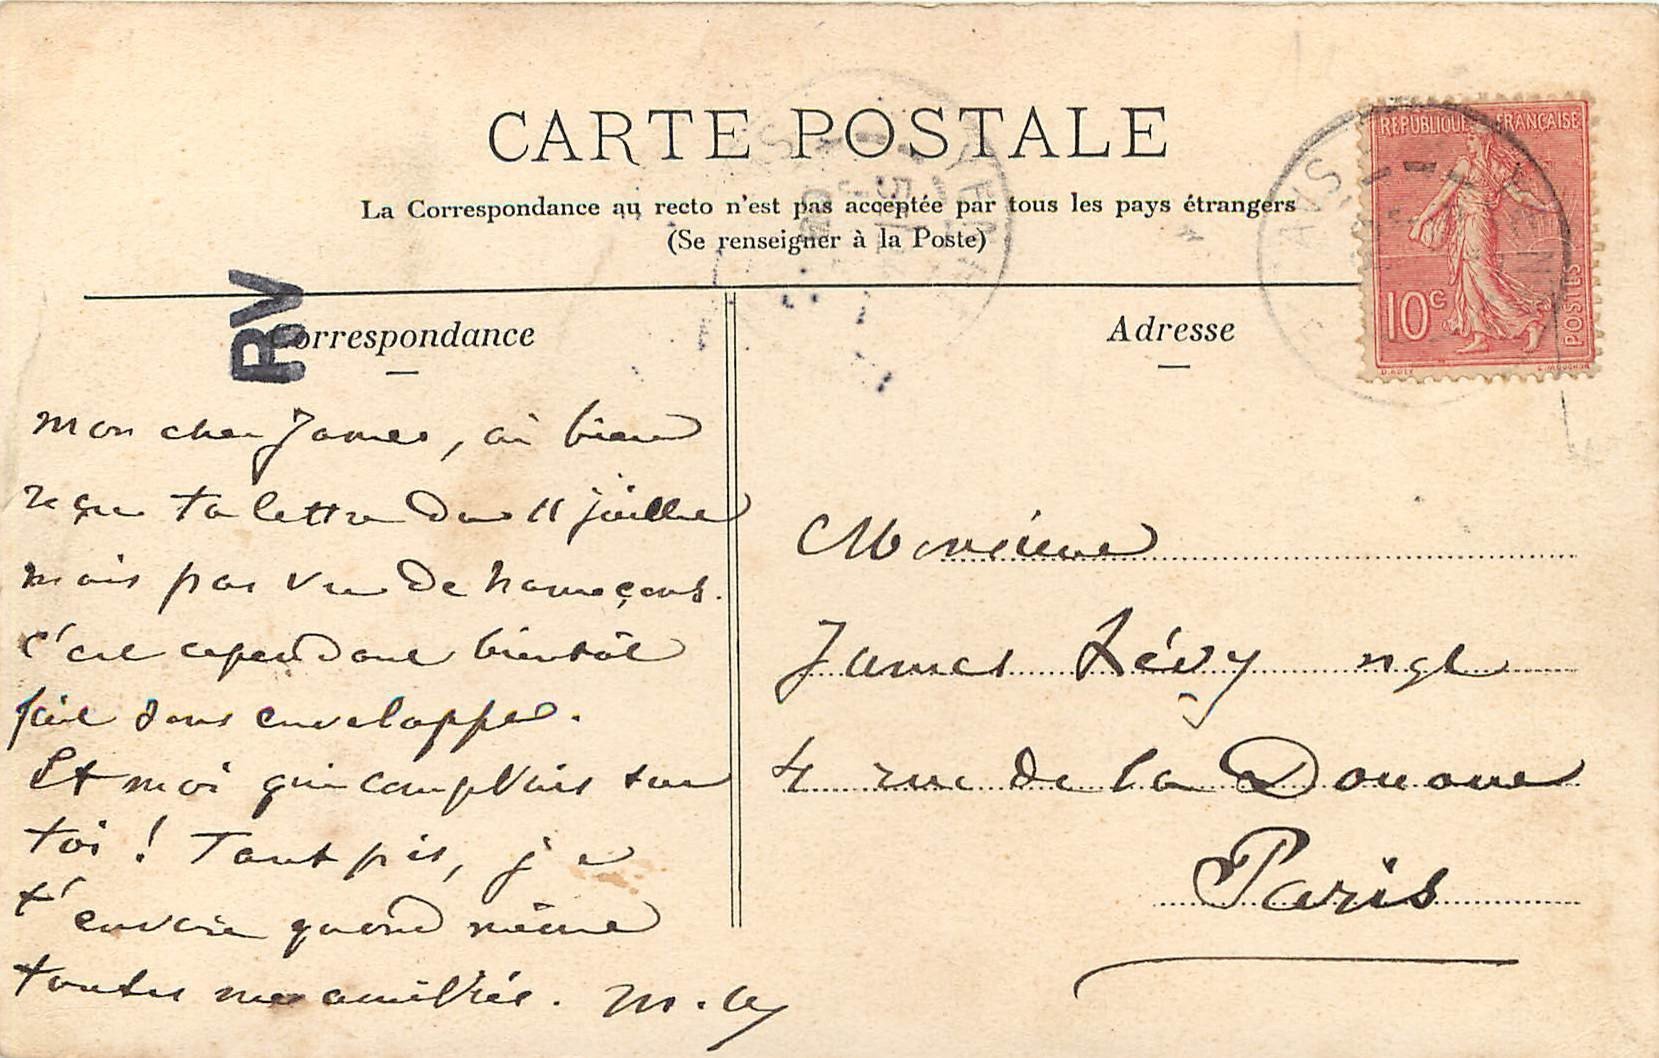 CARTE POSTALE
La Correspondance au recto n'est pas acceptée par tous les pays étrangers
(Se renseigner à la Poste)
RV
Correspondance
mon cher James, ai bien
reçu ta lettre du 11 juillet
mais pas vu de hameçons.
C'est cependant bientôt
fait sous enveloppe.
Et moi qui comptais sur
toi ! Tant pis, je
t'envoie quand même
toutes mes amitiés. M.
Adresse
REPUBLIQUE FRANÇAISE
10c
POSTES
Monsieur
James Lévy ngt
4 rue de la Douane
Paris